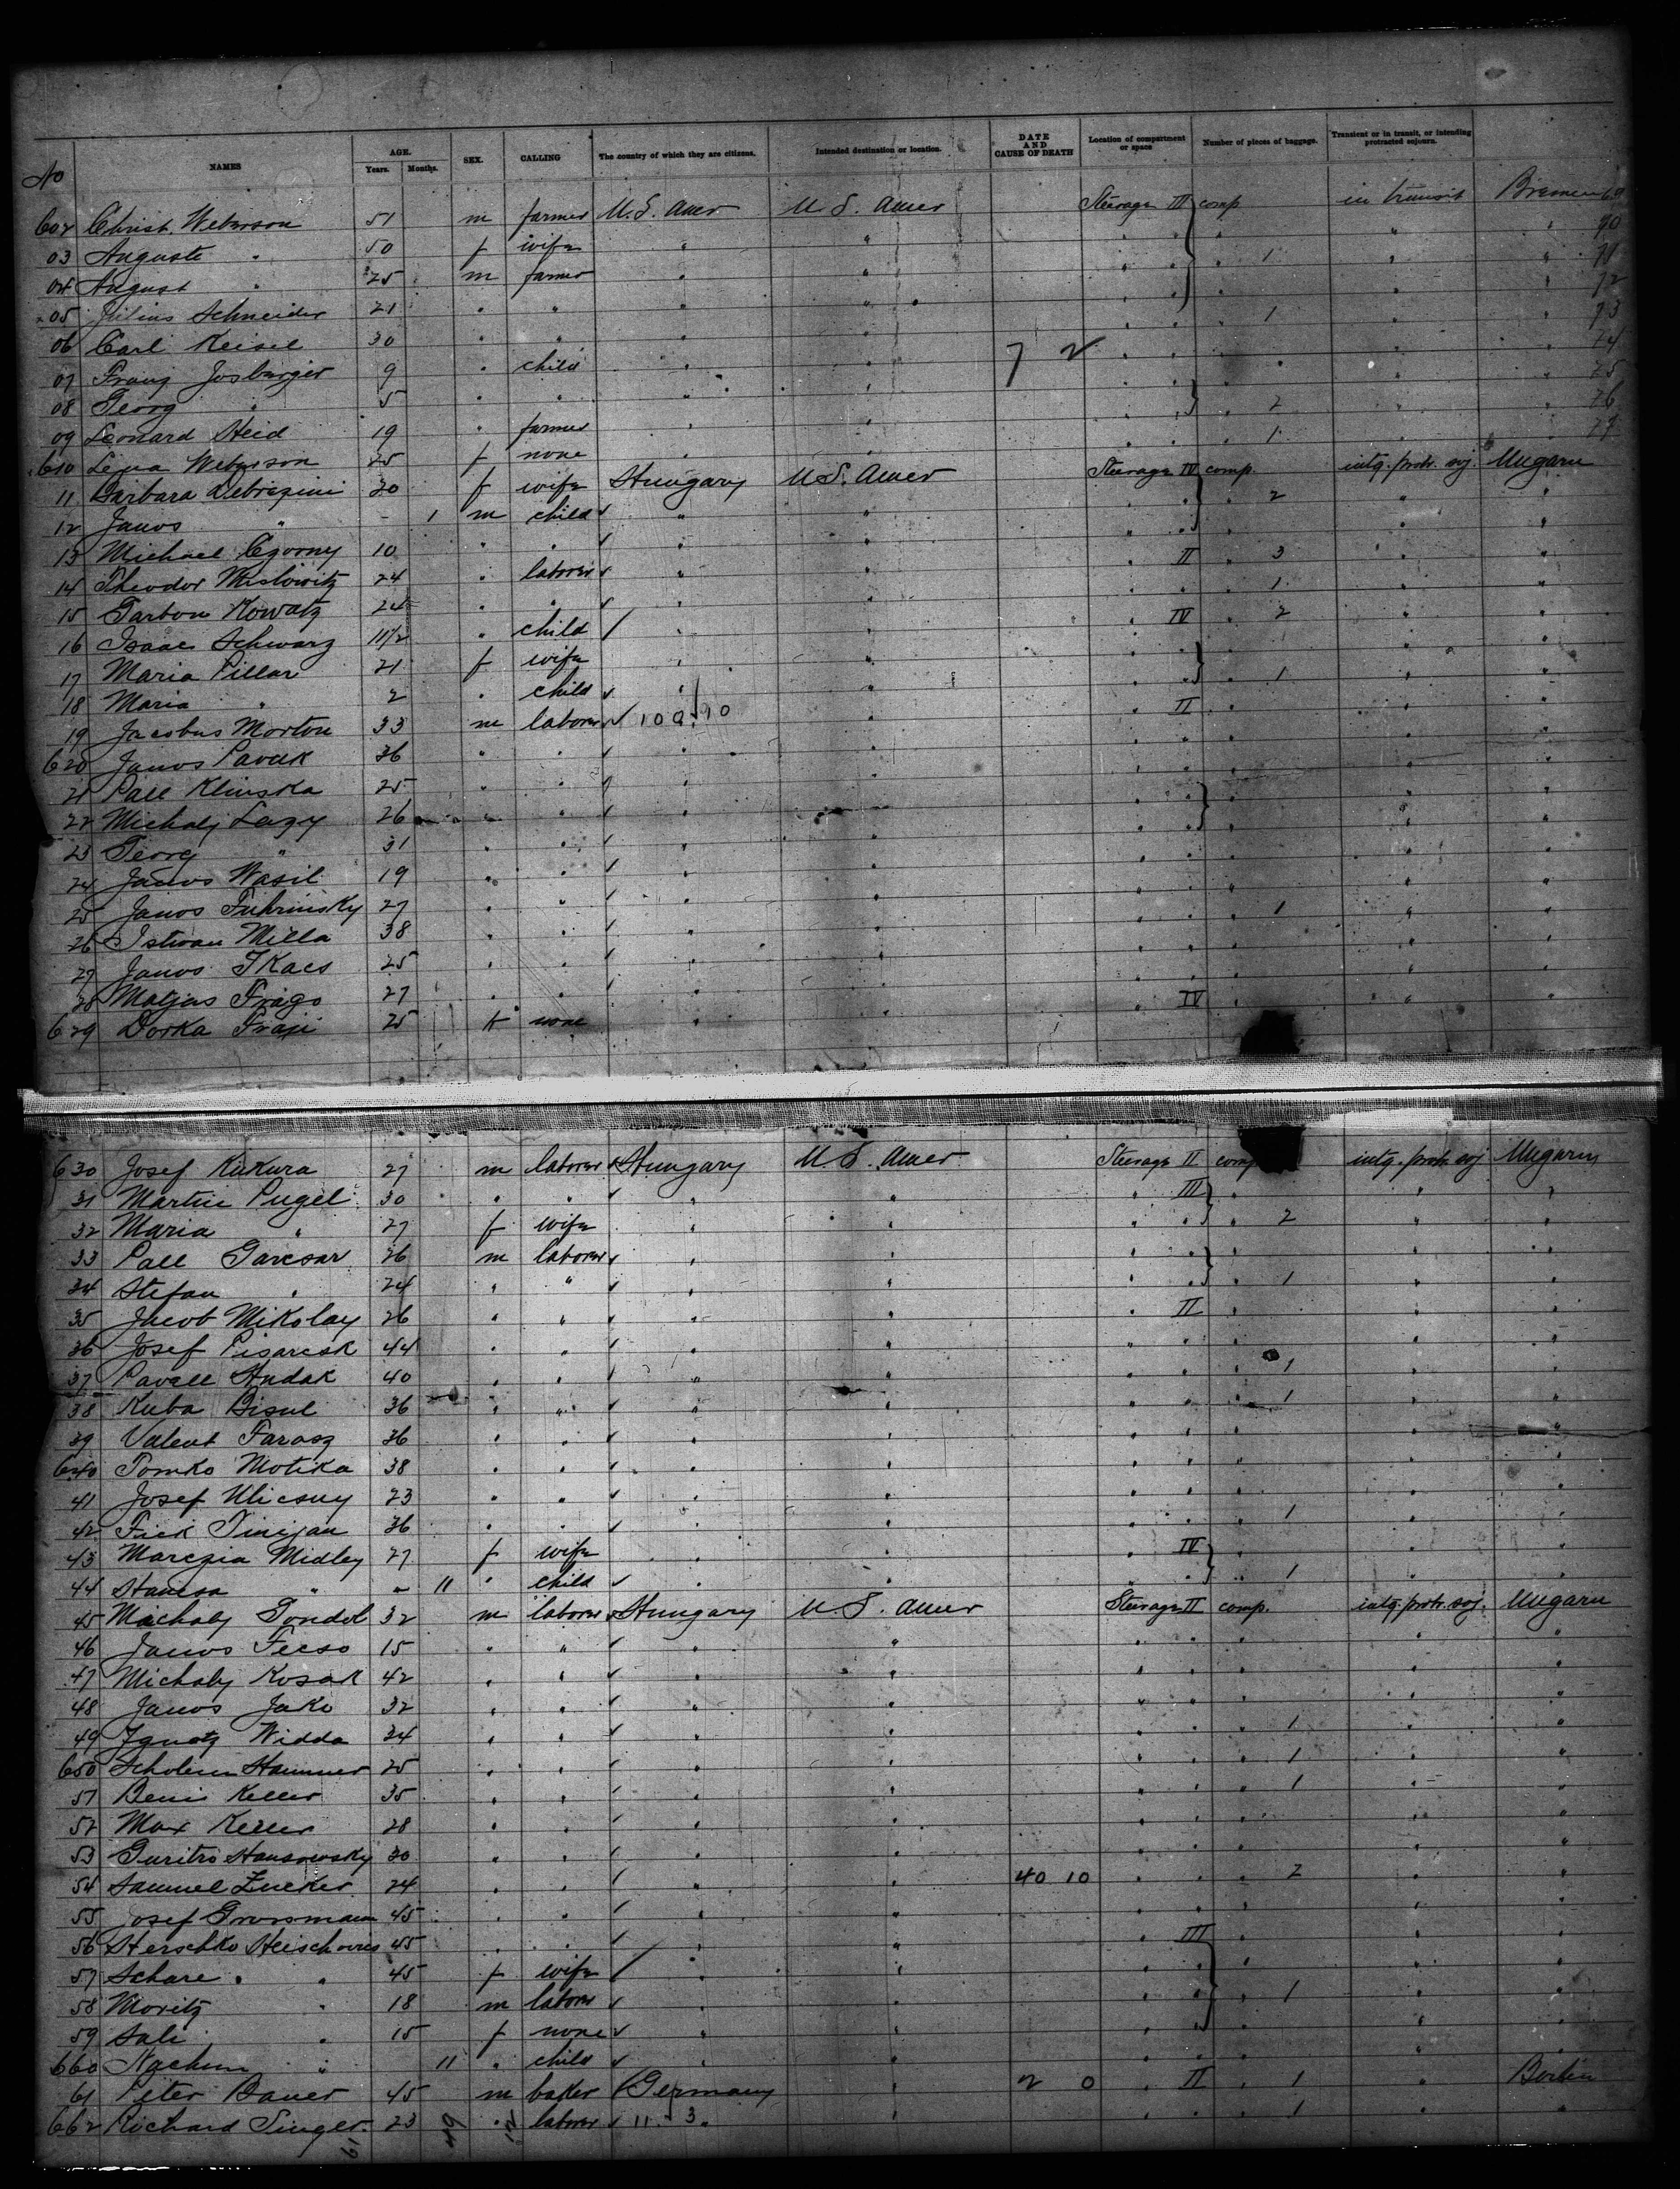 No NAMES AGE. Years. Months. SEX. CALLING The country of which they are citizens. Intended destination or location. DATE AND CAUSE OF DEATH Location of compartment or space Number of pieces of baggage. Transient or in transit, or intending protracted sojourn.
602 Christ. Weberson 51 m farmer U. S. Amer U. S. Amer Steerage III comp in transit Bremen 69
03 Auguste " 50 f wife " " " " 1 " " 70
04 August " 25 m farmer " " " " " " 71
05 Julius Schneider 21 " " " " " " 1 " " 72
06 Carl Keisel 30 " " " " " " " " 73
07 Franz Josburger 9 " child " " 7 2 " " " " 74
08 Georg " 5 " " " " " " 2 " " 75
09 Leonard Heid 19 " farmer " " " " 1 " " 76
610 Lena 25 f none " " " " 77
11 Barbara Debrezini 30 f wife Hungary U. S. Amer Steerage IV comp. intg. protr. soj. Ungarn
12 Janos " - 1 m child " " " " 2 " "
13 Michael Czorny 10 " " " " " " " "
14 Theodor Mislowitz 24 " laborer " " " II " 3 " "
15 Kowatz 24 " " " " " " 1 " "
16 Isaac Schwarz 11/2 " child " " " IV " 2 " "
17 Maria Pillar 21 f wife " " " " " "
18 Maria " 2 " child " " " " 1 " "
19 Jacobus Morton 33 m laborer 100.10 " " II " " "
620 Janos Pavuk 36 " " " " " " " "
21 Pall Klinska 25 " " " " " " " "
22 Michalj Lazy 26 " " " " " " " "
23 Georg " 31 " " " " " " " "
24 Janos Wasil 19 " " " " " " " "
25 Janos Fuhrinsky 27 " " " " " " " "
26 Istvan Milla 38 " " " " " " 1 " "
27 Janos Tkacs 25 " " " " " " " "
28 Matjas Frago 27 " " " " " " " "
629 Dorka Fraji 25 f none " " " IV " " "
630 Josef Kukura 27 m laborer Hungary U. S. Amer Steerage II comp intg. protr. soj Ungarn
31 Martin Pugel 30 " " " " " III " " "
32 Maria " 27 f wife " " " " 2 " "
33 Pall Garcsar 26 m laborer " " " " " "
34 Stefan " 24 " " " " " " 1 " "
35 Jacob Mikolay 26 " " " " " II " " "
36 Josef Pisarcsk 44 " " " " " " " "
37 Pavall Hudak 40 " " " " " " 1 " "
38 Kuba Bisul 36 " " " " " " 1 " "
39 Valent Farasz 36 " " " " " " " "
640 Tomko Motika 38 " " " " " " " "
41 Josef Ulicsny 23 " " " " " " " "
42 Fick 36 " " " " " " 1 " "
43 Marczia Midley 27 f wife " " " IV " " "
44 " - 11 " child " " " " 1 " "
45 Michaly Gondol 32 m laborer Hungary U. S. Amer Steerage II comp. intg. protr. soj. Ungarn
46 Janos Fecso 15 " " " " " " " "
47 Michaly Kosak 42 " " " " " " " "
48 Janos Jako 32 " " " " " " " "
49 Ignatz Widda 34 " " " " " " 1 " "
650 Hammer 25 " " " " " " 1 " "
51 Beni Keller 35 " " " " " " 1 " "
52 Max Keller 28 " " " " " " " "
53 Hansowsky 30 " " " " " " " "
54 Samuel Zucker 24 " " " " 40 10 " " 2 " "
55 Josef Grossmann 45 " " " " " " " "
56 Herschko 45 " " " " " III " " "
57 Schare " " 45 f wife " " " " " "
58 Moritz " 18 m laborer " " " " 1 " "
59 Sali " 15 f none " " " " " "
660 Nachum " 11 " child " " " " " "
61 Peter Bauer 45 m baker Germany " 2 0 " II " 1 " Berlin
662 Richard Singer 23 " laborer 11. 3 " " " " 1 " "
61 49 12